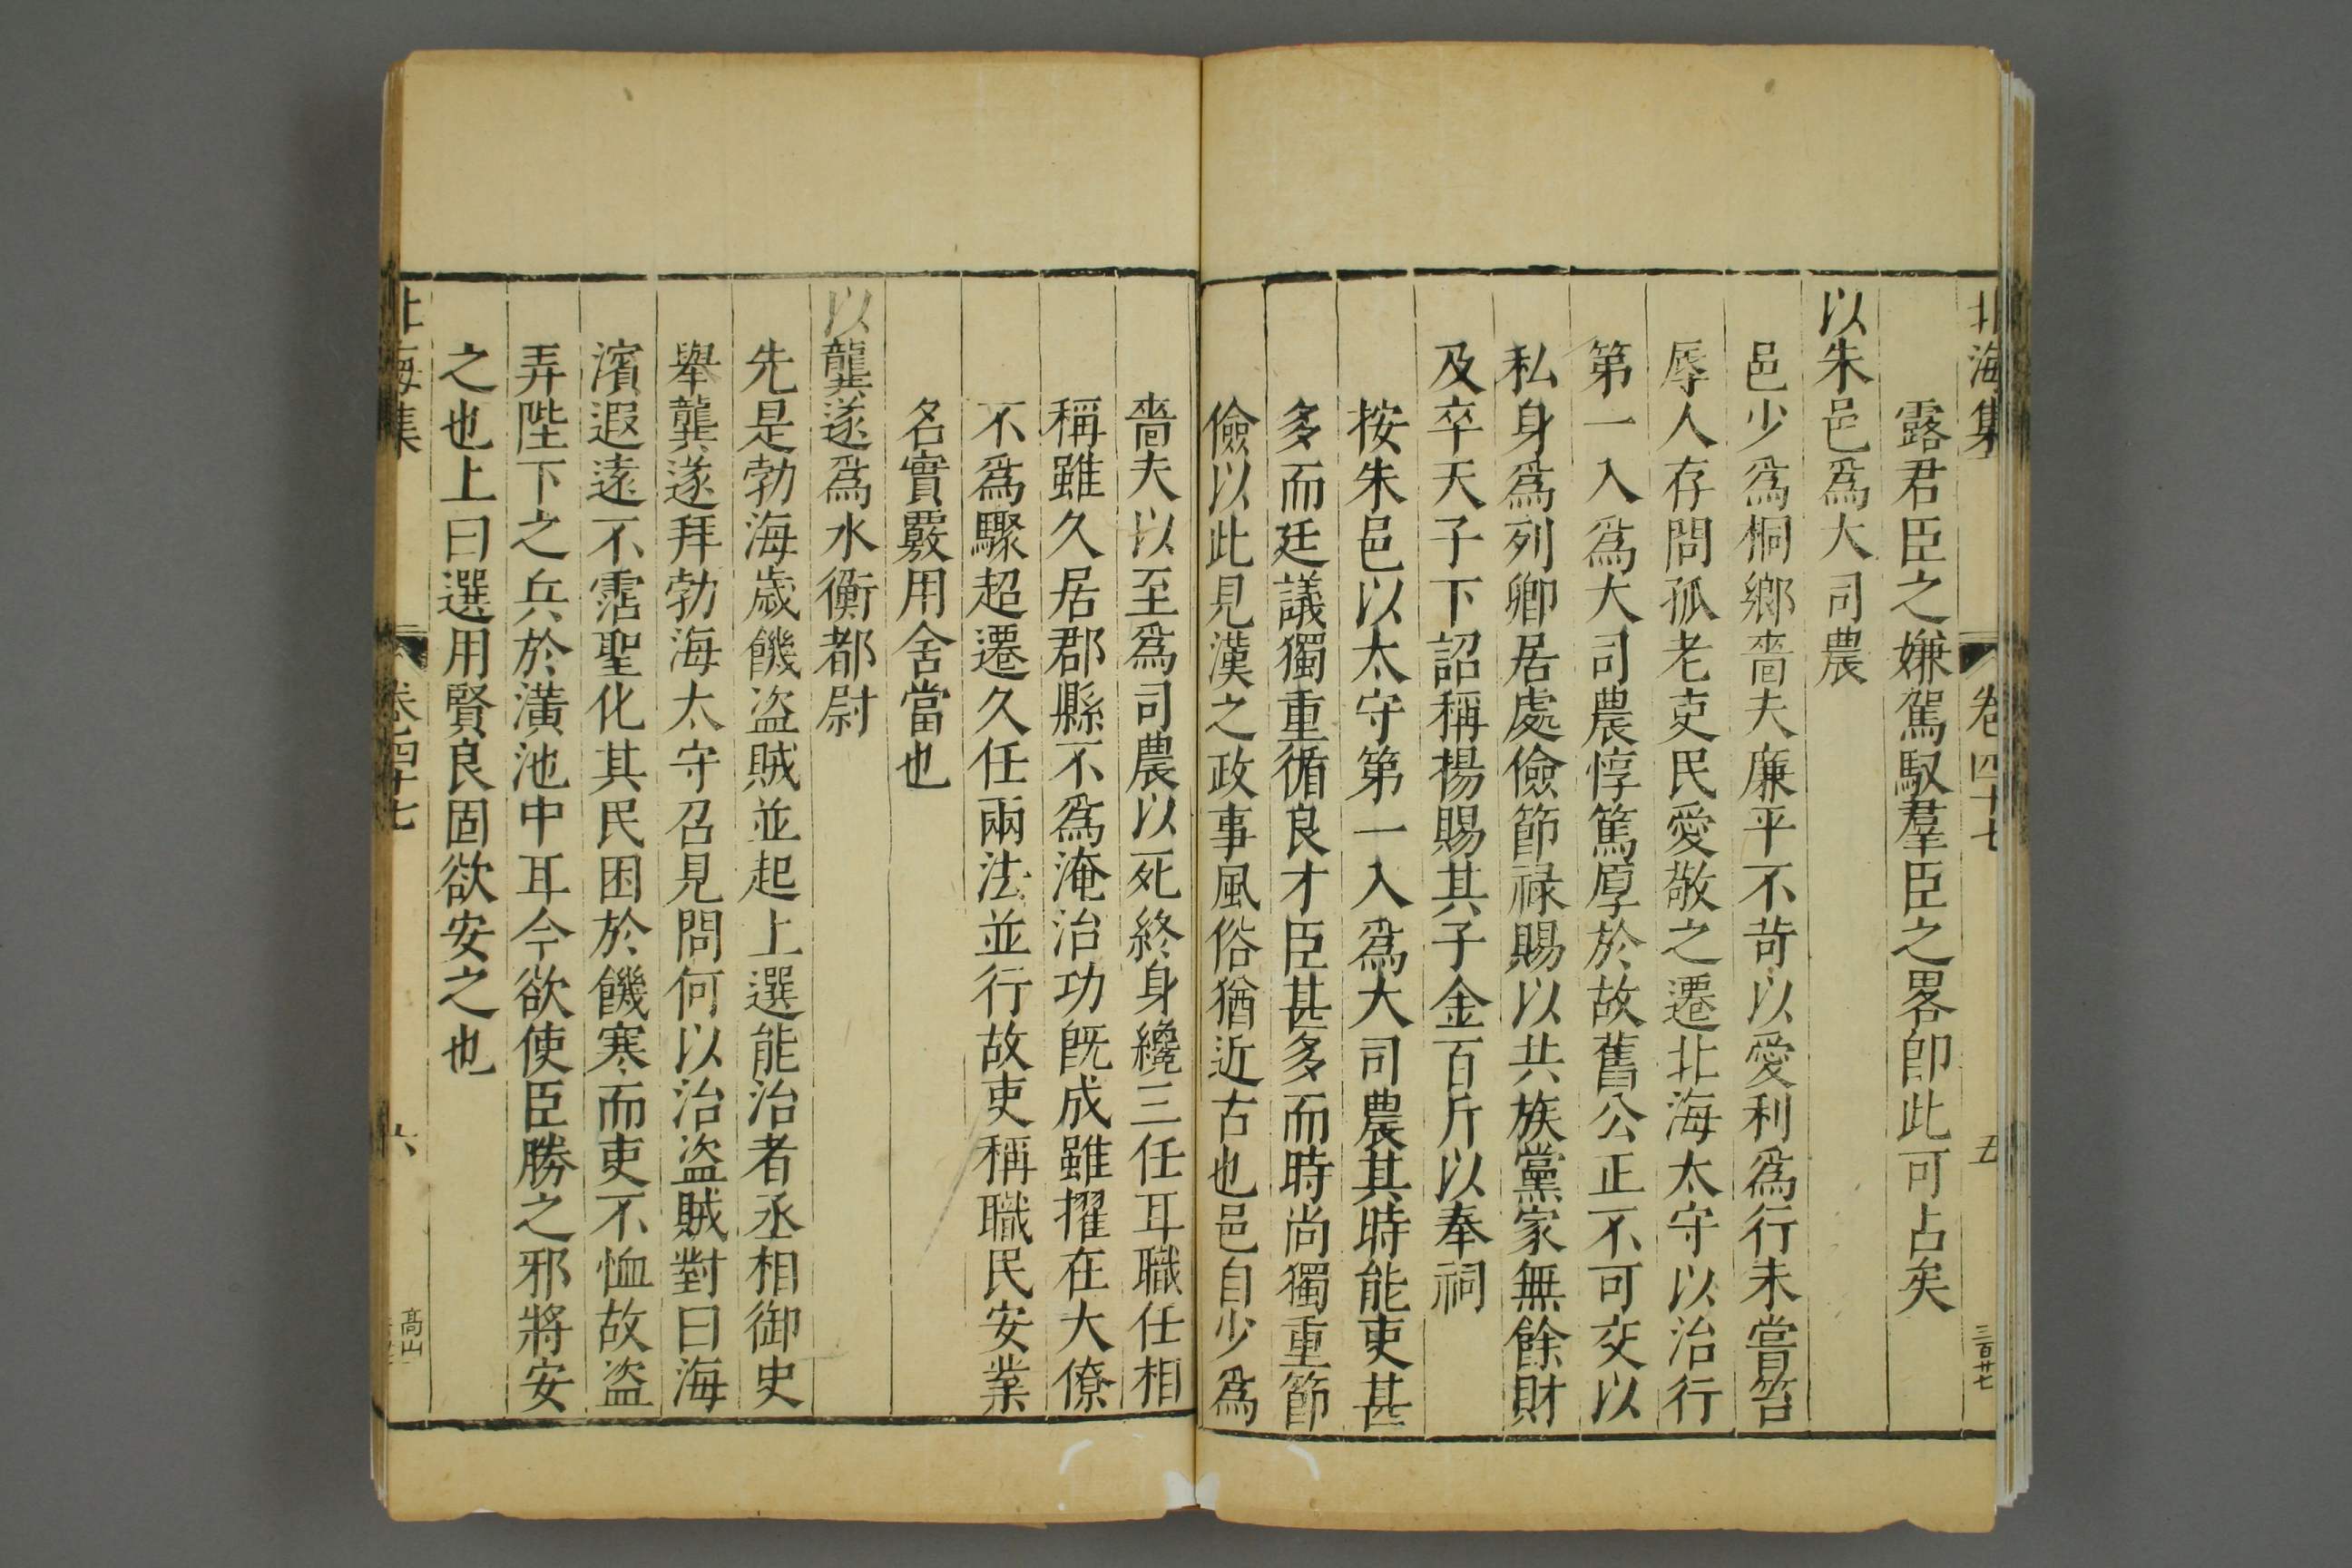 北海集 卷四十七 五 三百廿七
露君臣之嫌駕馭羣臣之畧卽此可占矣
以朱邑爲大司農
邑少爲桐鄉嗇夫廉平不苛以愛利爲行未嘗笞
辱人存問孤老吏民愛敬之遷北海太守以治行
第一入爲大司農惇篤厚於故舊公正不可交以
私身爲列卿居處儉節祿賜以共族黨家無餘財
及卒天子下詔稱揚賜其子金百斤以奉祠
按朱邑以太守第一入爲大司農其時能吏甚
多而廷議獨重循良才臣甚多而時尚獨重節
儉以此見漢之政事風俗猶近古也邑自少爲
嗇夫以至爲司農以死終身纔三任耳職任相
稱雖久居郡縣不爲淹治功旣成雖擢在大僚
不爲驟超遷久任兩法並行故吏稱職民安業
名實覈用舍當也
以龔遂爲水衡都尉
先是勃海歲饑盜賊並起上選能治者丞相御史
舉龔遂拜勃海太守召見問何以治盜賊對曰海
濱遐遠不霑聖化其民困於饑寒而吏不恤故盜
弄陛下之兵於潢池中耳今欲使臣勝之邪將安
之也上曰選用賢良固欲安之也
北海集 卷四十七 六 高山